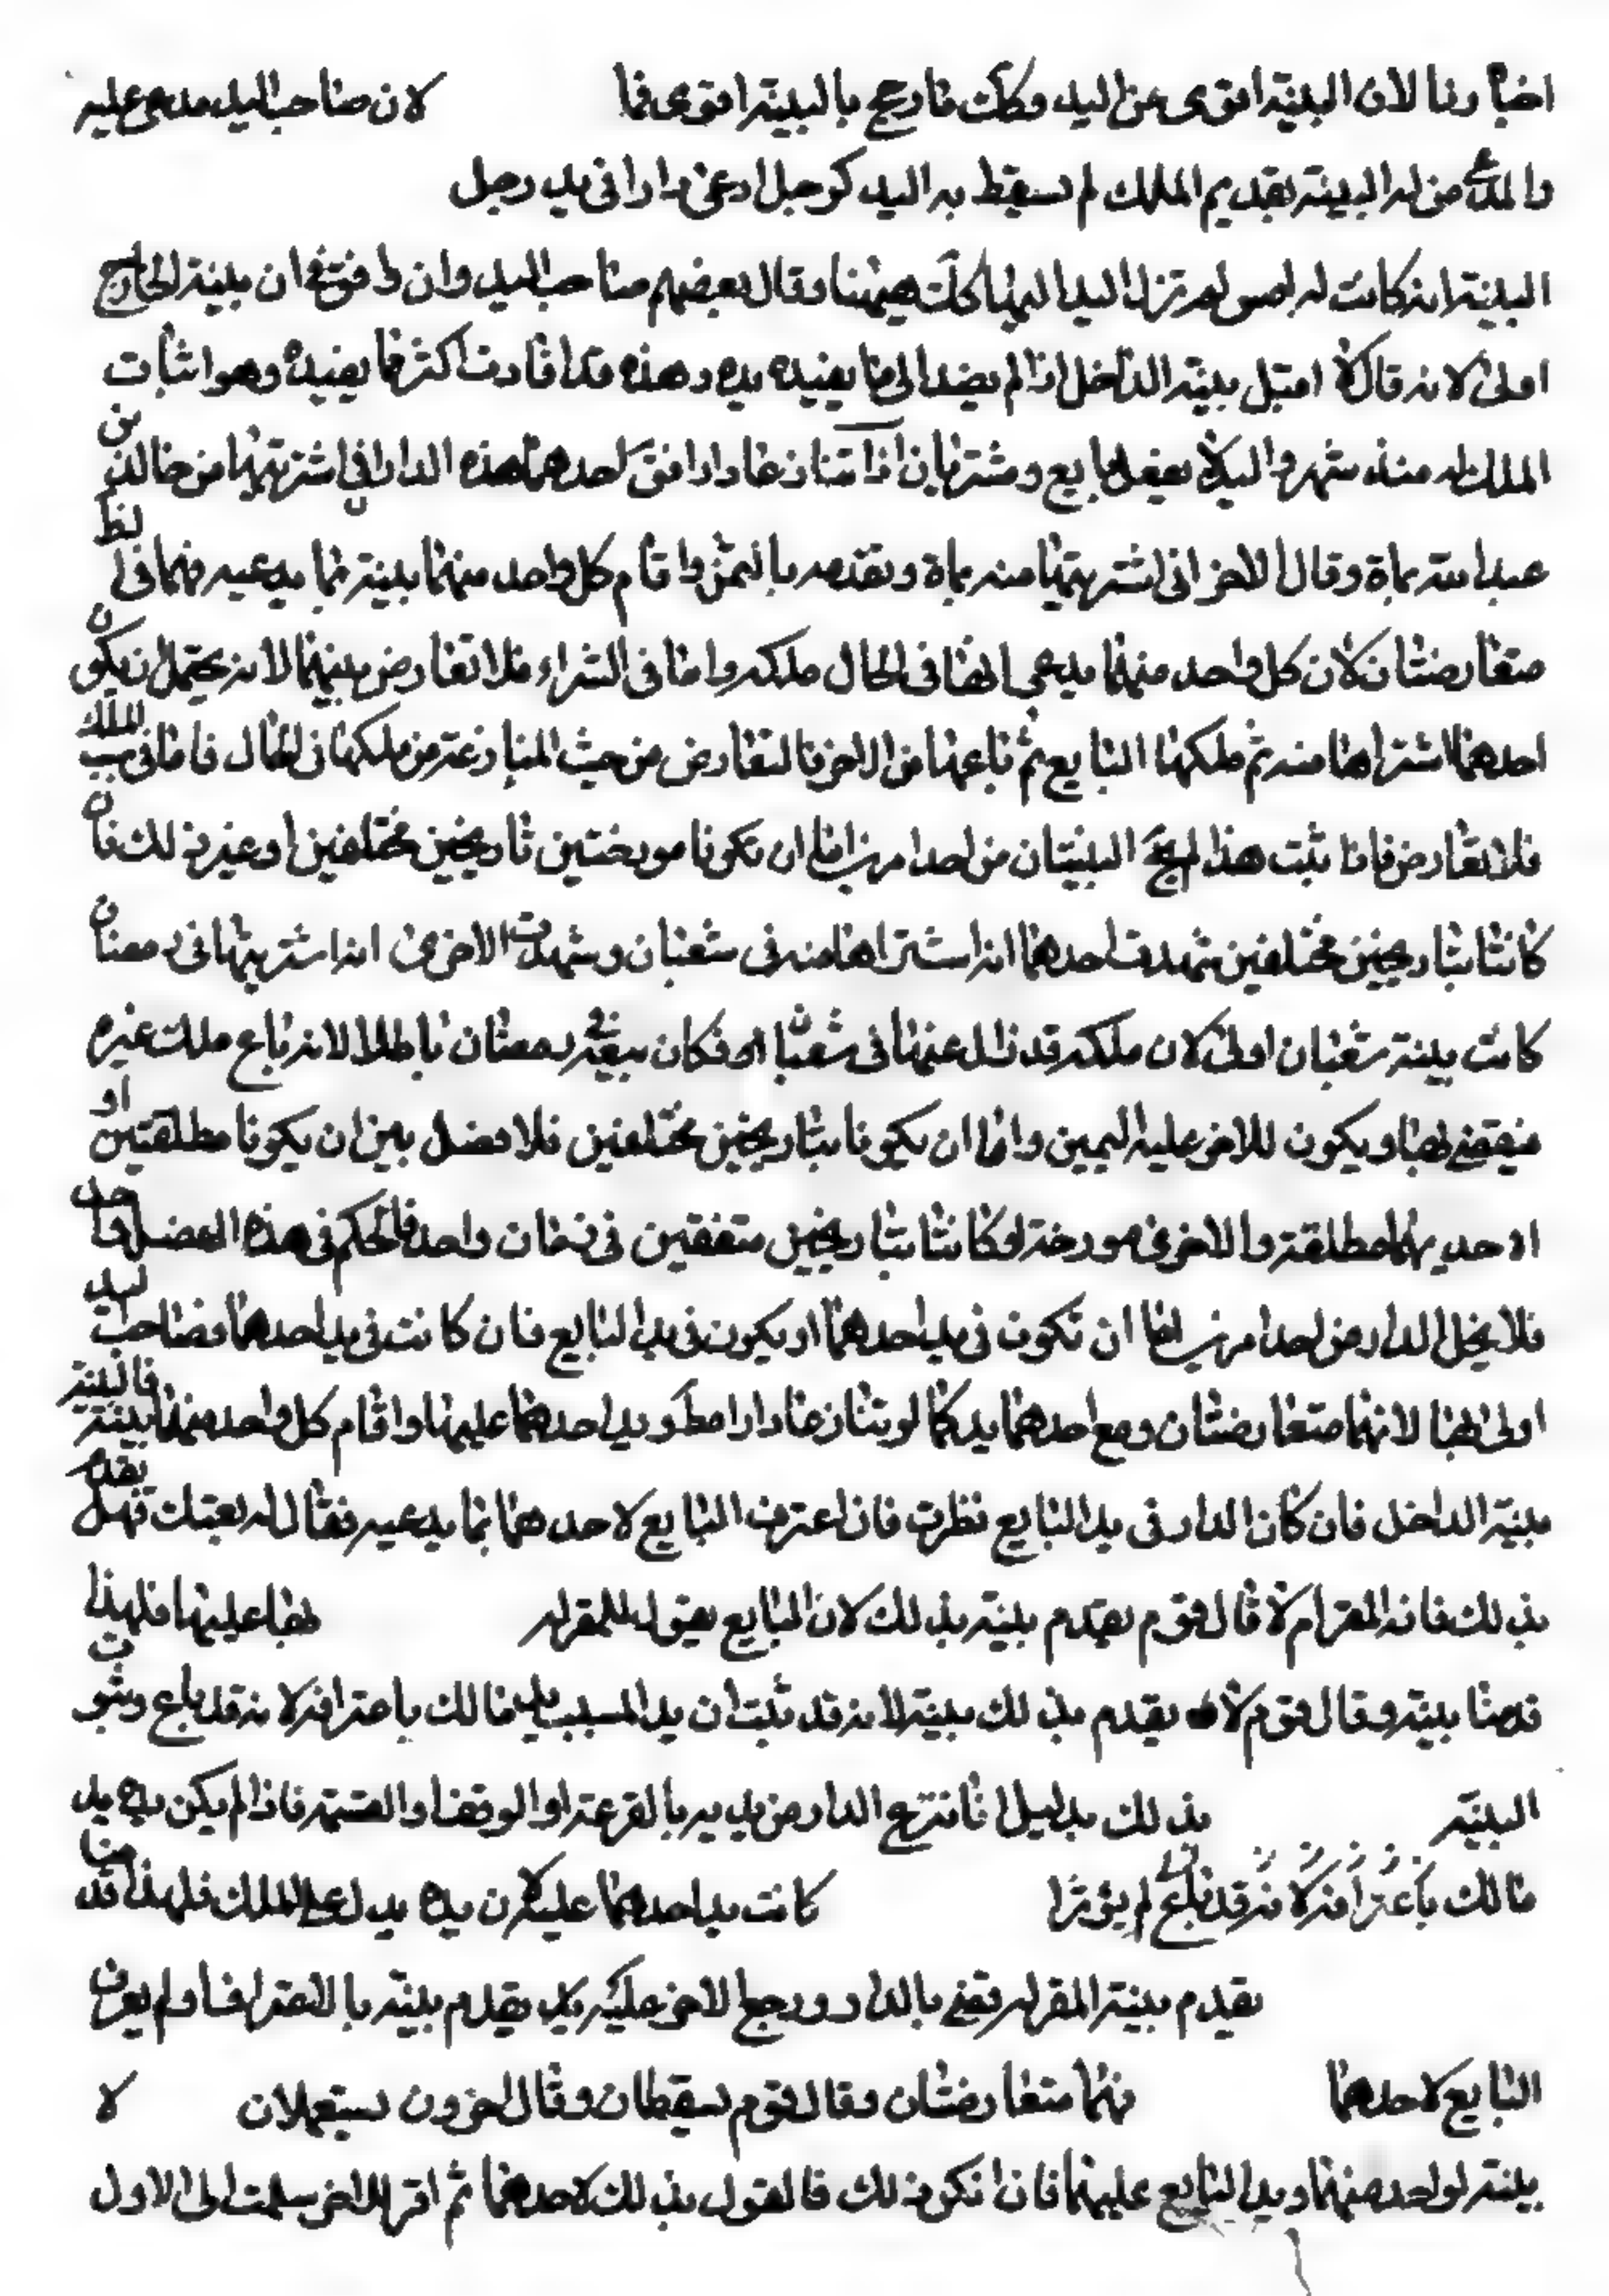 اخبارنا لان البينة اقوى من اليد وكك نارجح بالبينة اقوى فما لان صاحب اليد مدعى عليه
والمدعي من له البينة بقديم الملك لم يسقط به اليد كرجل ادعى دارا فى يد رجل
البينة انه كانت له امس لم تزل اليد بها كك هيهنا وقال بعضهم صاحب اليد وان وافق في ان بينة الخارج
اولى لانه قال لا اقبل بينة الداخل اذا لم يفد الى ما يفيده يده وهذه قد افادت اكثر مما يفيده وهو اثبات
الملك له منذ شهر واليد لا بايع ومشتريان اذا تنازعا دارا فق احدهما هذه الدار اني اشتريتها من خالد بن
عبد الله بماة وقال الاخر انى اشتريتها منه بماة ونقدته بالثمن واقام كل واحد منهما بينة بما يدعيه فهما فى لظ
متعارضتان لان كل واحد منهما يدعي انها فى الحال ملكه واما فى الشراء فلا تعارض بينهما لانه يحتمل ان يكون
احدهما اشتراها منه ثم ملكها البايع ثم باعها من الاخر فالتعارض من حيث المنازعة من ملكها فى الحال فاما فى الملك
فلا تعارض فاذا ثبت هذا لم تخل البينتان من احد امرين اما ان تكونا مورختين تاريخين مختلفين او غير ذلك فان
كانتا بتاريخين مختلفين شهدت احدهما انه اشتراها منه فى شعبان وشهدت الاخرى انه اشتريتها فى رمضان
كانت بينة شعبان اولى لان ملكه قد زال عنها فى شعبان فكان بيعه في رمضان باطلا لانه باع ملك غيره
فيقضى بها ويكون للاخر عليه اليمين واما ان يكونا بتاريخين مختلفين فلا فصل بين ان يكونا مطلقتين او
احديهما مطلقة والاخرى مورخة او كانتا بتاريخين متفقين فى زمان واحد فالحكم فى هذا الفصل واحد
فلا يخل الدار من احد امرين اما ان تكون فى يد احدهما او يكون فى يد البايع فان كانت فى يد احدهما فصاحب اليد
اولى بها لانهما متعارضتان ومع احدهما يد كما لو تنازعا دارا مط ويد احدهما عليها واقام كل واحد منهما بينة فالبينة
بينة الداخل فان كان الدار فى يد البايع نظرت فان اعترف البايع لاحدهما بما يدعيه فقال له بعتك فهل يقدم
بذلك فانه المقر ام لا قال قوم يقدم بينة بذلك لان البايع يقول للمقر له لها عليها فلهذا
قدمنا بينة وقال قوم لا يقدم بذلك بينة لانه قد ثبت ان يد المسبب يد مالك باعترافه لانه قد باع وثبوت
البينة بذلك بدليل انا ننتزع الدار من يديه بالقرعة او الوقف او القسمة فاذا لم يكن يده يد
مالك باعترافه لانه قد باع لم يؤثر اذا كانت يد احدهما عليه لان يده يدل على الملك فلهذا قدمنا
بقدم بينة المقر له قضى بالدار ورجع الاخر عليه يقدم بينة بالاعتراف او لم يعرف
البايع لاحدهما فهما متعارضتان وقال قوم يسقطان وقال اخرون يستعملان لا
بينة لواحد منهما ويد البايع عليهما فان انكر ذلك فالقول بذلك لاحدهما ثم اقر للاخر سلمت الى الاول